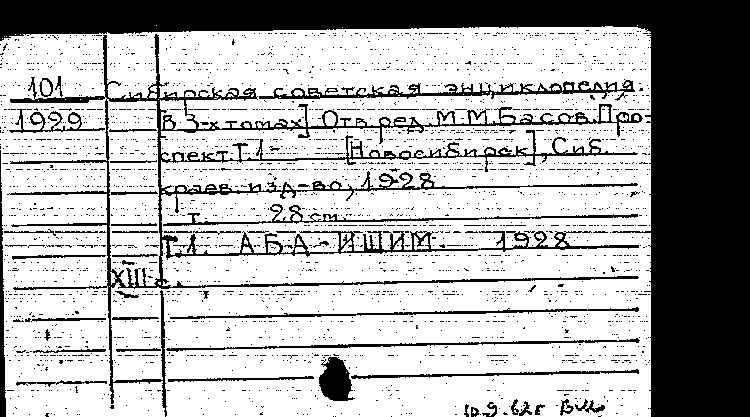 101 Сибирская советская энциклопедия.
1929 В 3-х томах] Отв. ред. М.М.Басов. Про-
спект. Т.1- [Новосибирск], Сиб.
краев. изд-во, 1928
т. 28 см.
Т.1. АБА-ИШИМ. 1928
XIII с.